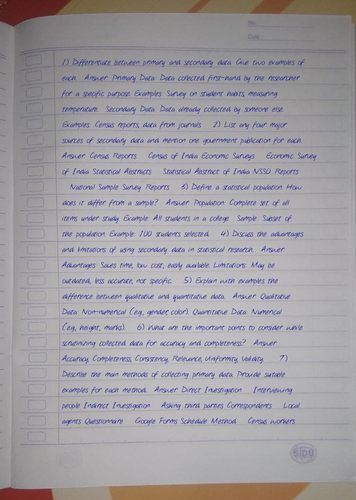 No.
Date:
1) Differentiate between primary and secondary data. Give two examples of
each. Answer Primary Data: Data collected first-hand by the researcher
for a specific purpose. Examples: Survey on student habits, measuring
temperature. Secondary Data: Data already collected by someone else.
Examples: Census reports, data from journals. 2) List any four major
sources of secondary data and mention one government publication for each.
Answer Census Reports Census of India Economic Surveys Economic Survey
of India Statistical Abstracts Statistical Abstract of India NSSO Reports
National Sample Survey Reports 3) Define a statistical population. How
does it differ from a sample? Answer Population: Complete set of all
items under study. Example: All students in a college. Sample: Subset of
the population. Example: 100 students selected. 4) Discuss the advantages
and limitations of using secondary data in statistical research. Answer
Advantages: Saves time, low cost, easily available. Limitations: May be
outdated, less accurate, not specific. 5) Explain with examples the
difference between qualitative and quantitative data. Answer Qualitative
Data: Non-numerical (e.g., gender, color). Quantitative Data: Numerical
(e.g., height, marks). 6) What are the important points to consider while
scrutinizing collected data for accuracy and completeness? Answer
Accuracy, Completeness, Consistency, Relevance, Uniformity, Validity. 7)
Describe the main methods of collecting primary data. Provide suitable
examples for each method. Answer Direct Investigation Interviewing
people Indirect Investigation Asking third parties Correspondents Local
agents Questionnaire Google Forms Schedule Method Census workers